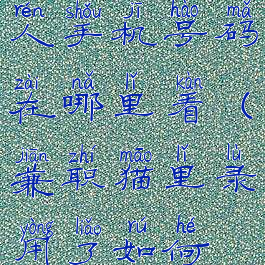 rén shǒu jī hào mǎ
人手机号码
zài nǎ lǐ kàn
在哪里看（
jiān zhí māo lǐ lù
兼职猫里录
yòng liǎo rú hé
用了如何